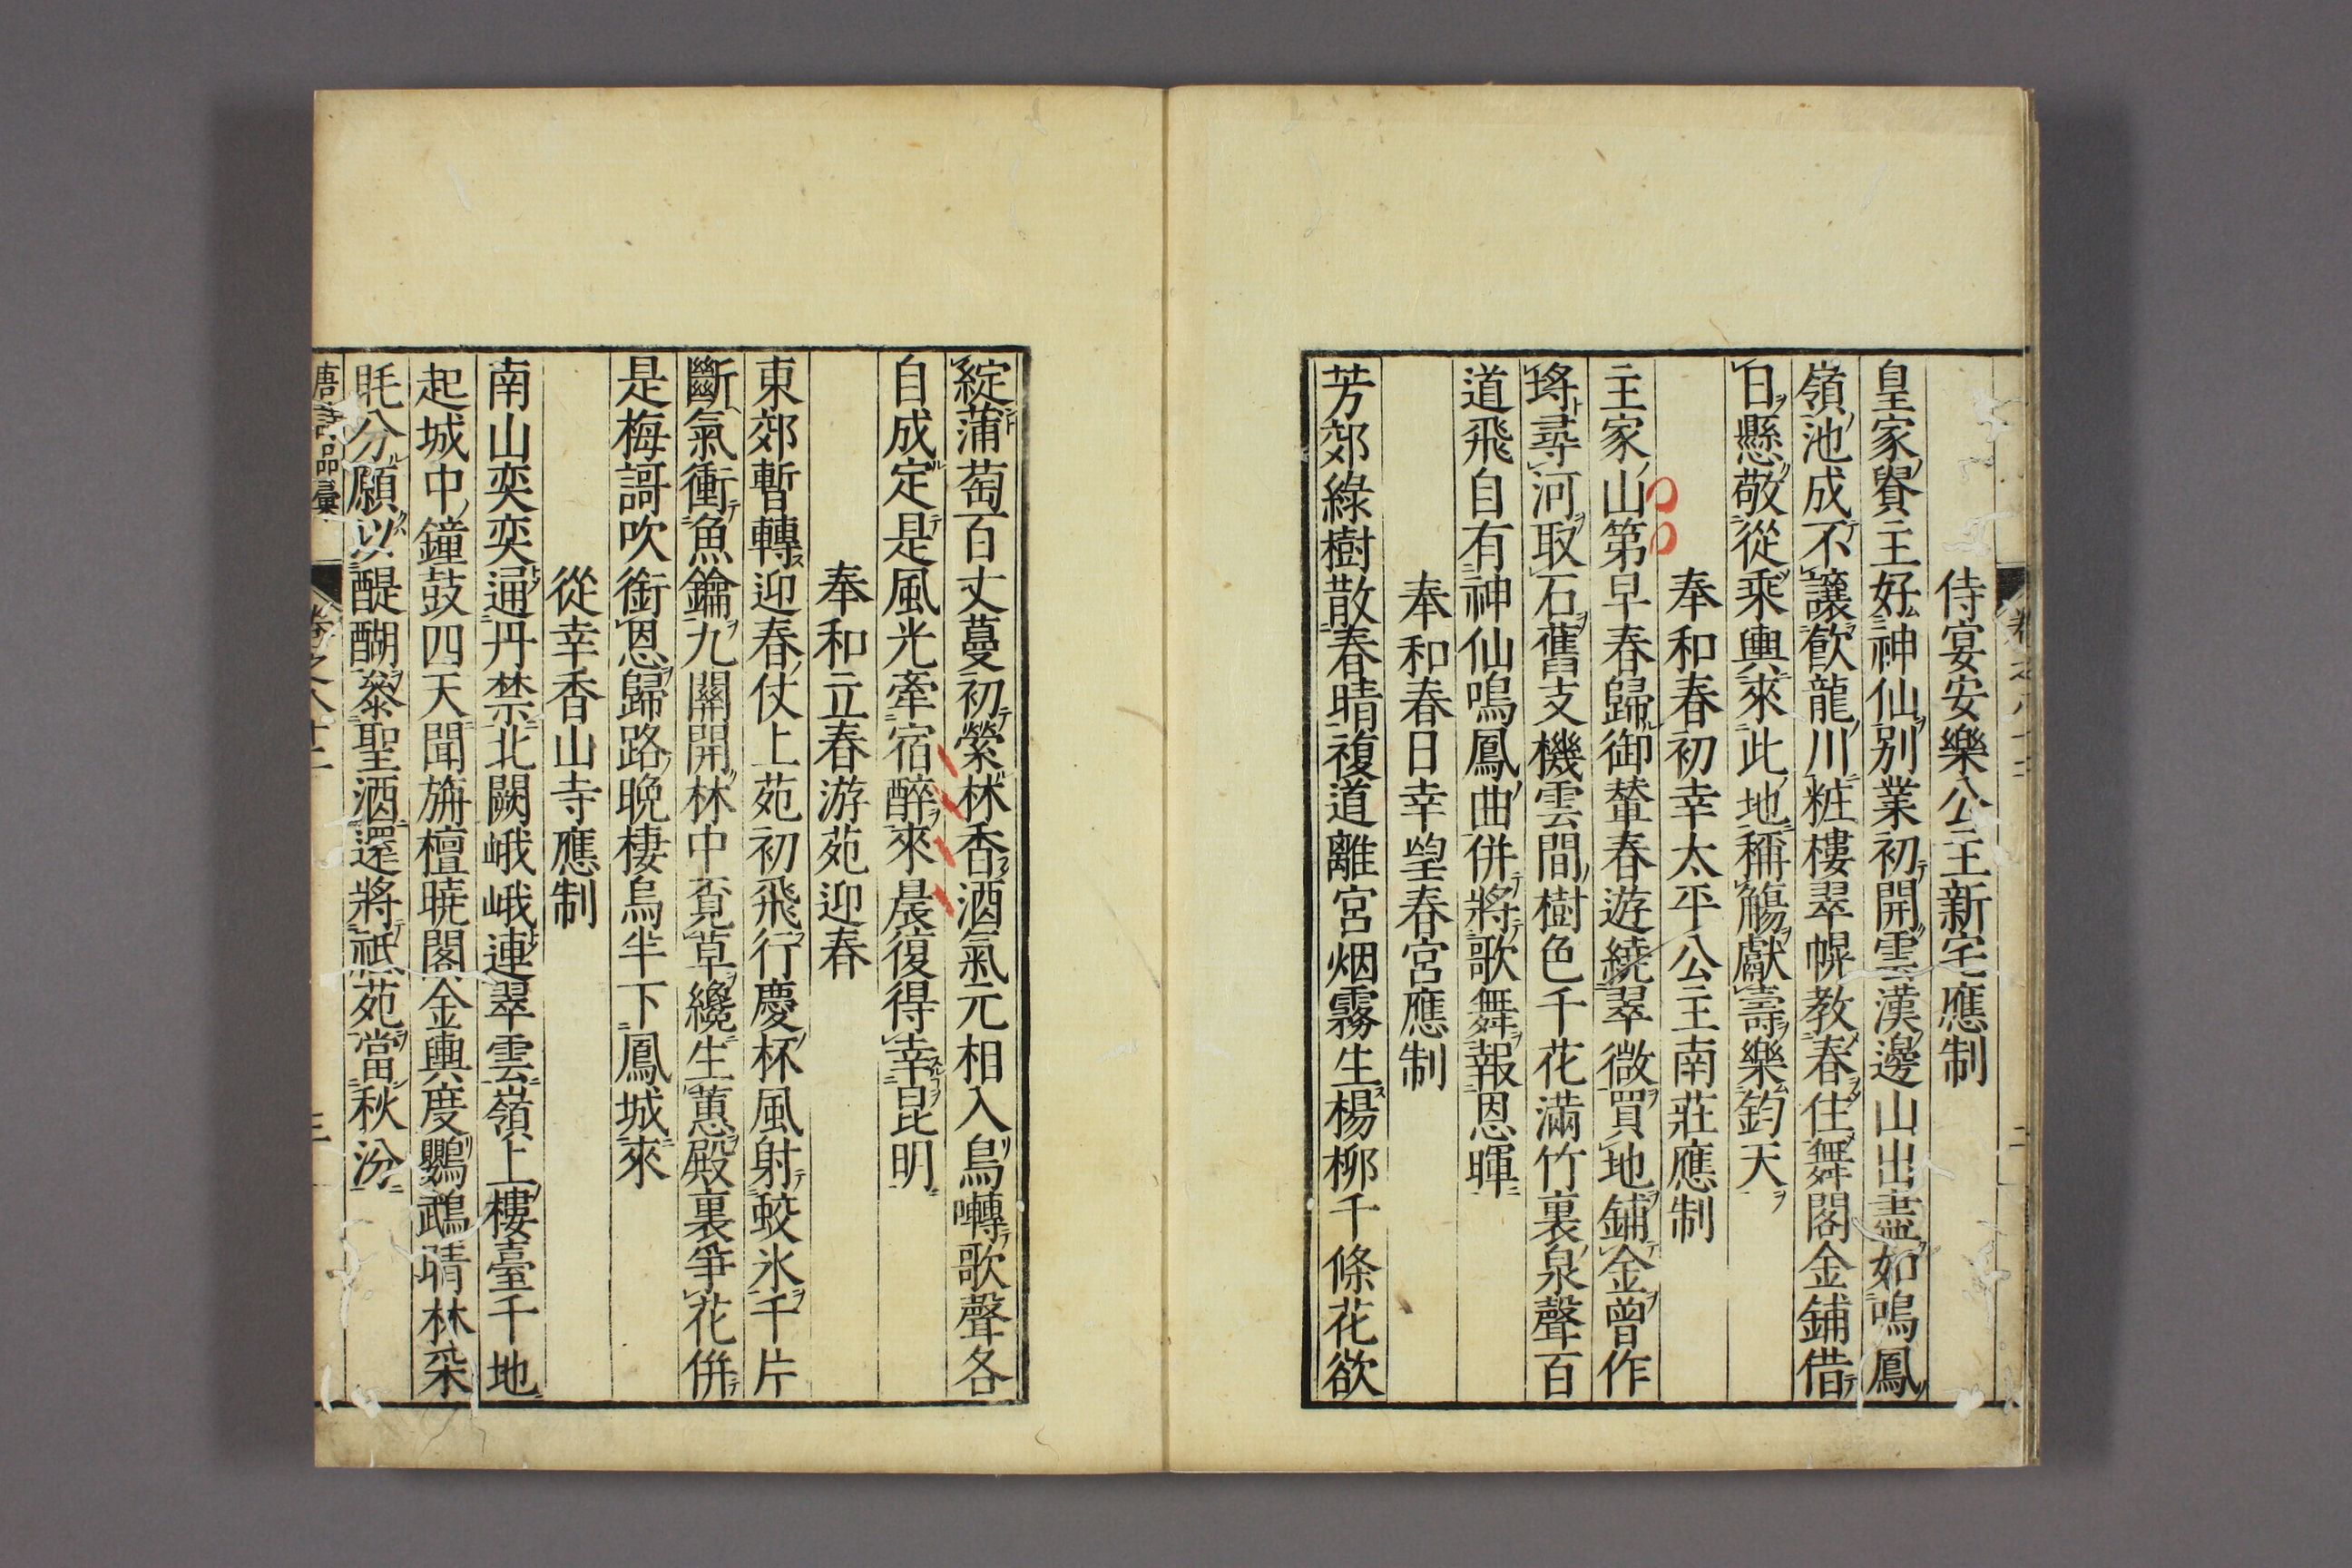 侍宴安樂公主新宅應制
皇家貴主好神仙別業初開雲漢邊山出盡如鳴鳳
嶺池成不讓飲龍川粧樓翠幌教春住舞閣金鋪借
日懸敬從乘輿來此地稱觴獻壽樂鈞天
奉和春初幸太平公主南莊應制
主家山第早春歸御輦春遊繞翠微買地鋪金曾作
埒尋河取石舊支機雲間樹色千花滿竹裏泉聲百
道飛自有神仙鳴鳳曲併將歌舞報恩暉
奉和春日幸望春宮應制
芳郊綠樹散春晴複道離宮烟霧生楊柳千條花欲
綻蒲萄百丈蔓初縈林香酒氣元相入鳥囀歌聲各
自成定是風光牽宿醉來晨復得幸昆明
奉和立春游苑迎春
東郊暫轉迎春仗上苑初飛行慶杯風射蛟氷千片
斷氣衝魚鑰九關開林中覓草纔生蕙殿裏爭花併
是梅謌吹銜恩歸路晚棲烏半下鳳城來
從幸香山寺應制
南山奕奕通丹禁北闕峨峨連翠雲嶺上樓臺千地
起城中鐘鼓四天聞旃檀曉閣金輿度鸚鵡晴林采
眊分願以醍醐參聖酒還將祇苑當秋汾
唐詩品彙 卷之八十二 三